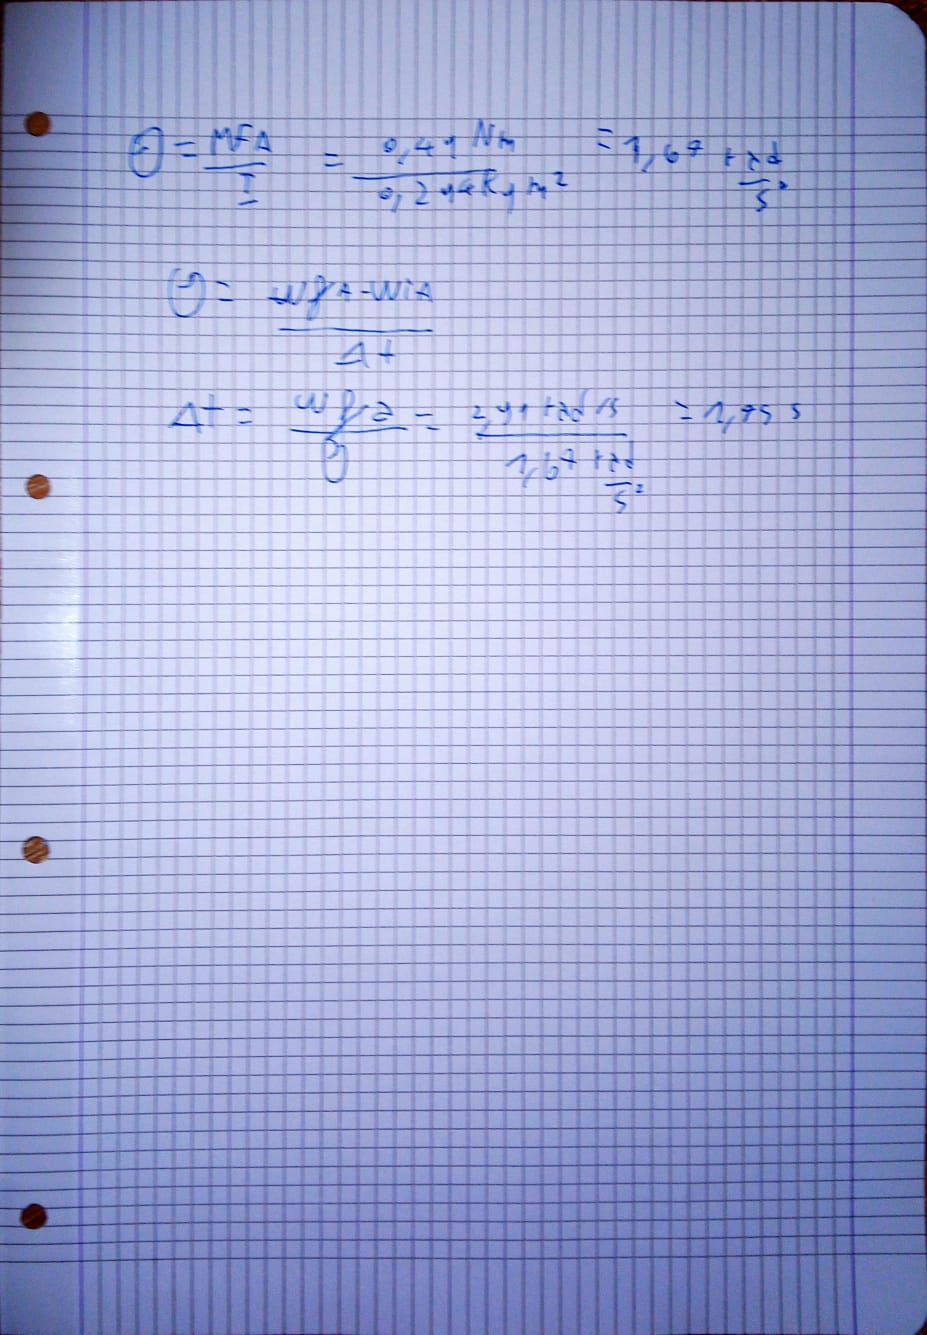 Θ = MFA / I = 0,49 Nm / 0,294 kg m² = 1,67 rad / s²
Θ = ωfA - ωiA / Δt
Δt = ωfa / Θ = 2,91 rad/s / 1,67 rad / s² = 1,75 s